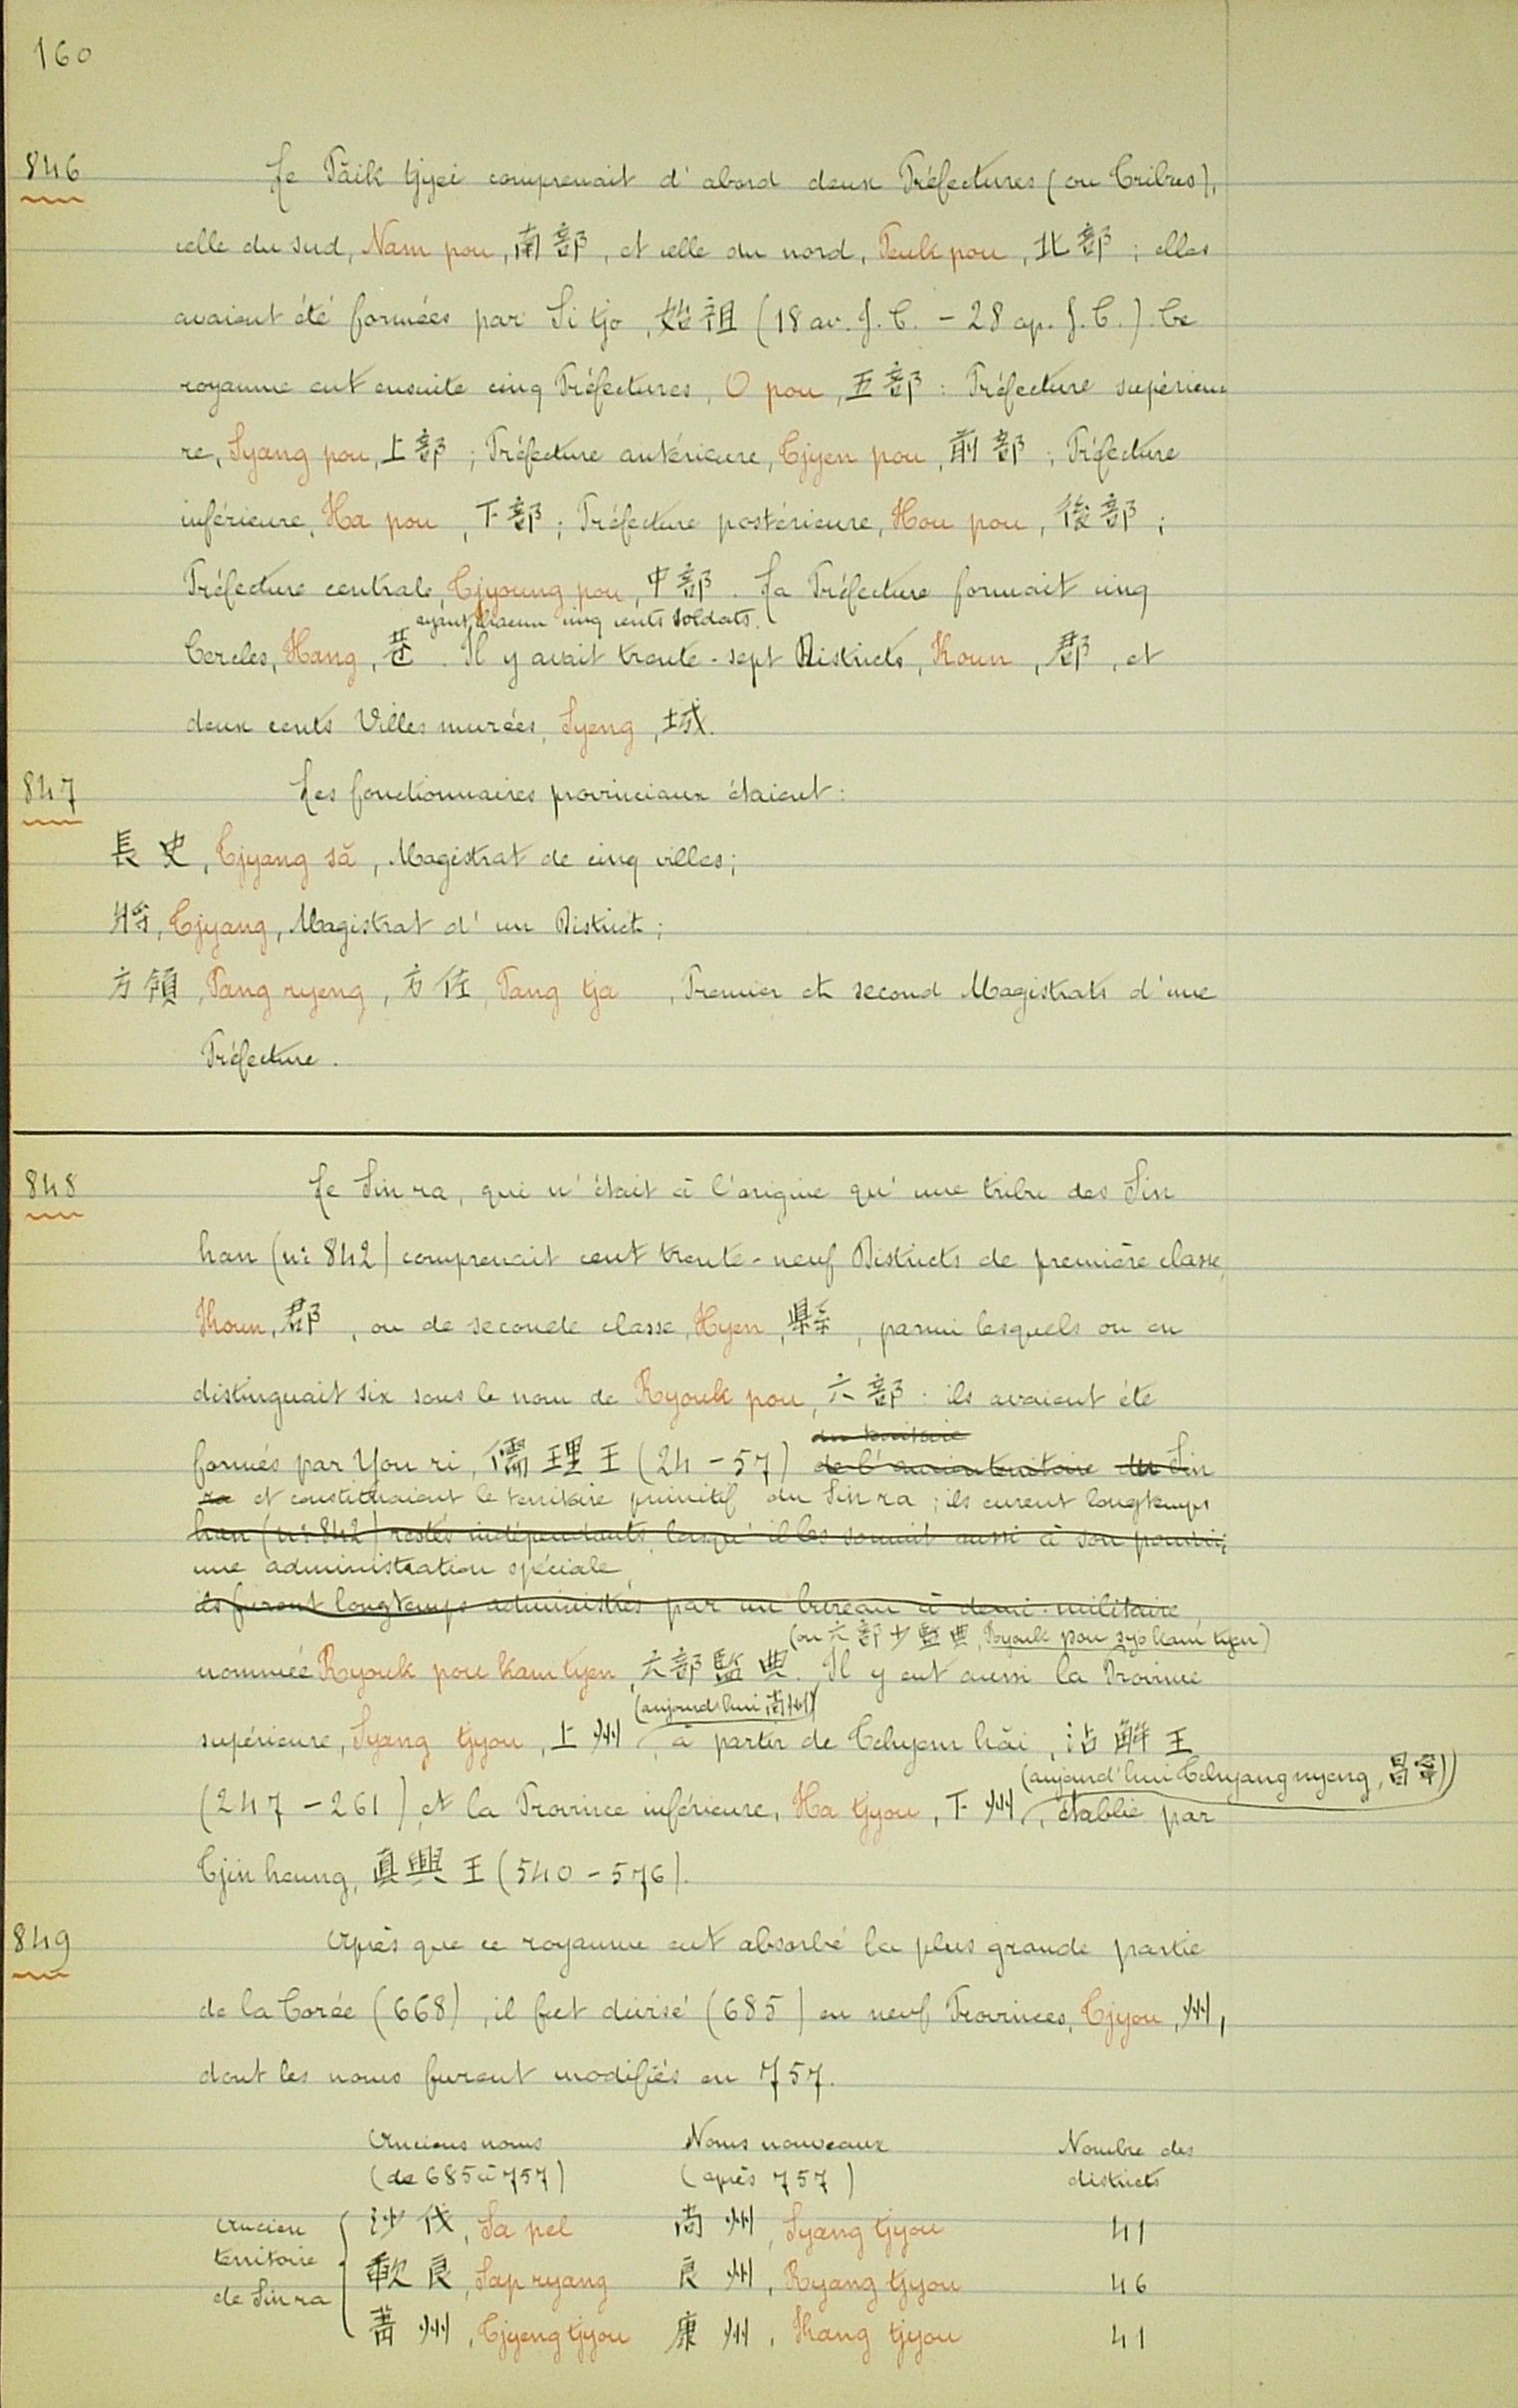 160
846
Le Păik tjyei comprenait d'abord deux Préfectures (ou Tribus),
celle du sud, Nam pou, 南部, et celle du nord, Peuk pou, 北部; elles
avaient été formées par Si tjo, 始祖 (18 av. J. C. - 28 ap. J. C.). Ce
royaume eut ensuite cinq Préfectures, O pou, 五部: Préfecture supérieu-
re, Syang pou, 上部; Préfecture antérieure, Tjyen pou, 前部; Préfecture
inférieure, Ha pou, 下部; Préfecture postérieure, Hou pou, 後部;
Préfecture centrale, Tjyoung pou, 中部. La Préfecture formait cinq
ayant chacun cinq cents soldats.
Cercles, Hang, 巷. Il y avait trente-sept Districts, Koun, 郡, et
deux cents Villes murées, Syeng, 城.
847
Les fonctionnaires provinciaux étaient:
長史, Tjyang să, Magistrat de cinq villes;
将, Tjyang, Magistrat d'un District;
方領, Pang ryeng, 方佐, Pang tja, Premier et second Magistrats d'une
Préfecture.
848
Le Sin ra, qui n'était à l'origine qu'une tribu des Sin
han (nº 842) comprenait cent trente-neuf Districts de première classe,
Koun, 郡, ou de seconde classe, Hyen, 縣, parmi lesquels on en
distinguait six sous le nom de Ryouk pou, 六部: ils avaient été
du territoire
formés par You ri, 儒理王 (24-57) de l'ancien territoire du Sin
ra et constituaient le territoire primitif du Sin ra; ils eurent longtemps
han (nº 842) restés indépendants, lorsqu'il les soumit aussi à son pouvoir;
une administration spéciale,
ils furent longtemps administrés par un bureau à demi-militaire,
(ou 六部少監典, Ryouk pou syo kam tyen)
nommée Ryouk pou kam tyen, 六部監典. Il y eut aussi la Province
(aujourd'hui 尚州)
supérieure, Syang tjyou, 上州, à partir de Tchyem hăi, 沾解王
(aujourd'hui Tchyang nyeng, 昌寧)
(247-261), et la Province inférieure, Ha tjyou, 下州, établie par
Tjin heung, 真興王 (540-576).
849
Après que ce royaume eut absorbé la plus grande partie
de la Corée (668), il fut divisé (685) en neuf Provinces, Tjyou, 州,
dont les noms furent modifiés en 757.
Anciens noms Noms nouveaux Nombre des
(de 685 à 757) (après 757) districts
Ancien territoire de Sin ra
沙伐, Sa pel 尚州, Syang tjyou 41
歃良, Sap ryang 良州, Ryang tjyou 46
菁州, Tjyeng tjyou 康州, Kang tjyou 41